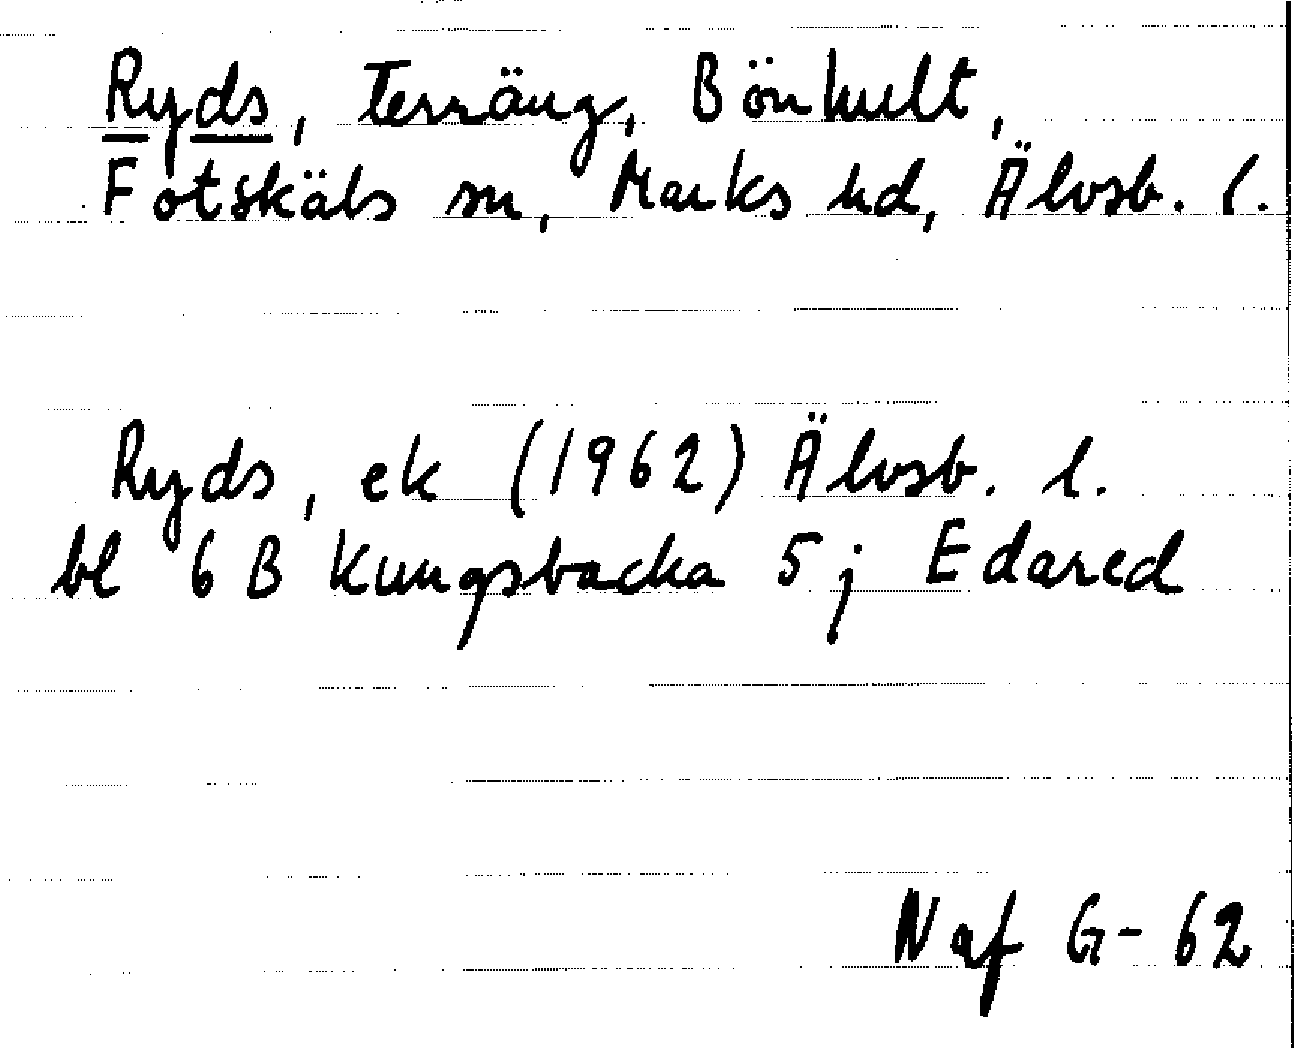 Ryds, Terräng, Bönhult,
Fotskäls sn, Marks hd, Älvsb. l.
Ryds, ek (1962) Älvsb. l.
bl 6 B Kungsbacka 5 j Edared
Naf G-62